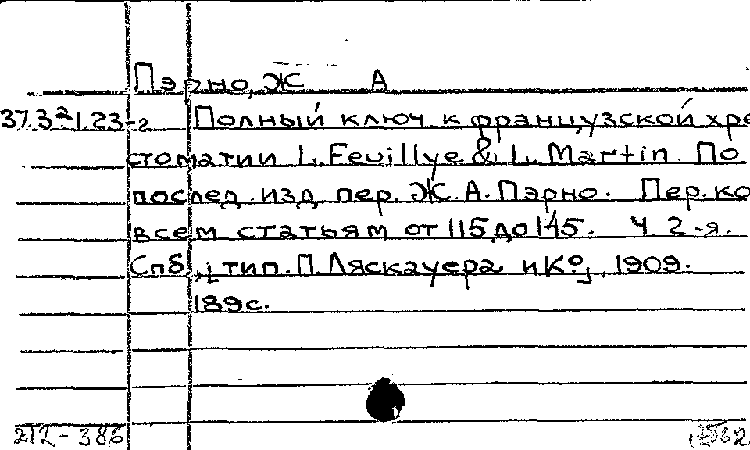 Пэрно, Ж А
37.3²1.23-2 Полный ключ к французской хре
стоматии L. Feuillye & L. Martin. По
послед. изд. пер. Ж. А. Пэрно. Пер. ко
всем статьям от 115 до 145. Ч 2-я.
Спб., [тип. П. Ляскауера и К⁰], 1909.
189 с.
212-386